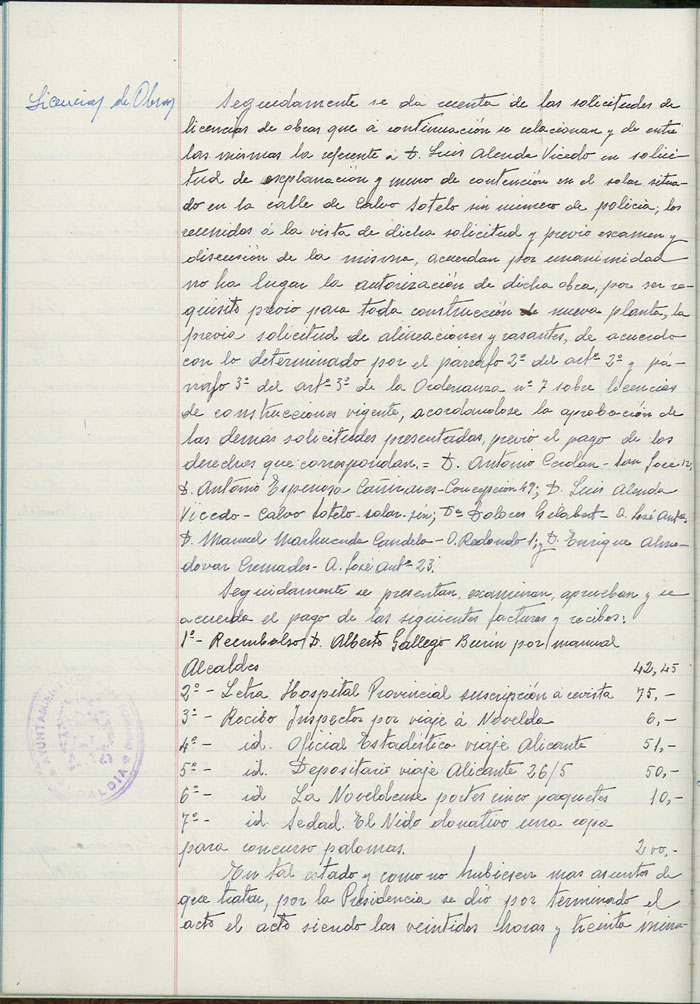 Licencias de Obras
Seguidamente se da cuenta de las solicitudes de
licencias de obras que á continuación se relacionan y de entre
las mismas la referente á D. Luis Alenda Vicedo en solici-
tud de explanación y muro de contención en el solar situa-
do en la calle de Calvo Sotelo sin número de policia, los
reunidos á la vista de dicha solicitud y previo examen y
discusión de la misma, acuerdan por unanimidad
no ha lugar la autorización de dicha obra, por ser re-
quisito previo para toda construcción de nueva planta, la
previa solicitud de alineaciones y rasantes, de acuerdo
con lo determinado por el párrafo 2º del artº 2º y pá-
rrafo 3º del artº 3º de la Ordenanza nº 7 sobre licencias
de construcciones vigente, acordandose la aprobación de
las demas solicitudes presentadas, previo el pago de los
derechos que correspondan.= D. Antonio Cerdan - San Jose 12,
D. Antonio Espinosa Cañizares - Concepción 49; D. Luis Alenda
Vicedo - Calvo Sotelo - solar - sin; Dª Dolores Gilabert - A. José Antº
D. Manuel Marhuenda Candela - O. Redondo 1; y D. Enrique Almo-
dovar Cremades - A. José Antº 23.
Seguidamente se presentan, examinan, aprueban y se
acuerda el pago de las siguientes facturas y recibos:
1º - Reembolso D. Alberto Gallego Burin por manual
Alcaldes 42,45
2º - Letra Hospital Provincial suscripción á revista 75,-
3º - Recibo Inspector por viaje á Novelda 6,-
4º - id. Oficial Estadística viaje Alicante 51,-
5º - id. Depositario viaje Alicante 26/5 50,-
6º - id La Noveldense portes cinco paquetes 10,-
7º - id Sedad. El Nido donativo una copa
para concurso palomas. 200,-
En tal estado y como no hubiesen mas asuntos de
que tratar, por la Presidencia se dió por terminado el
acto el acto siendo las veintidos horas y treinta minu-
AYUNTAMIENTO DE
ALCALDIA